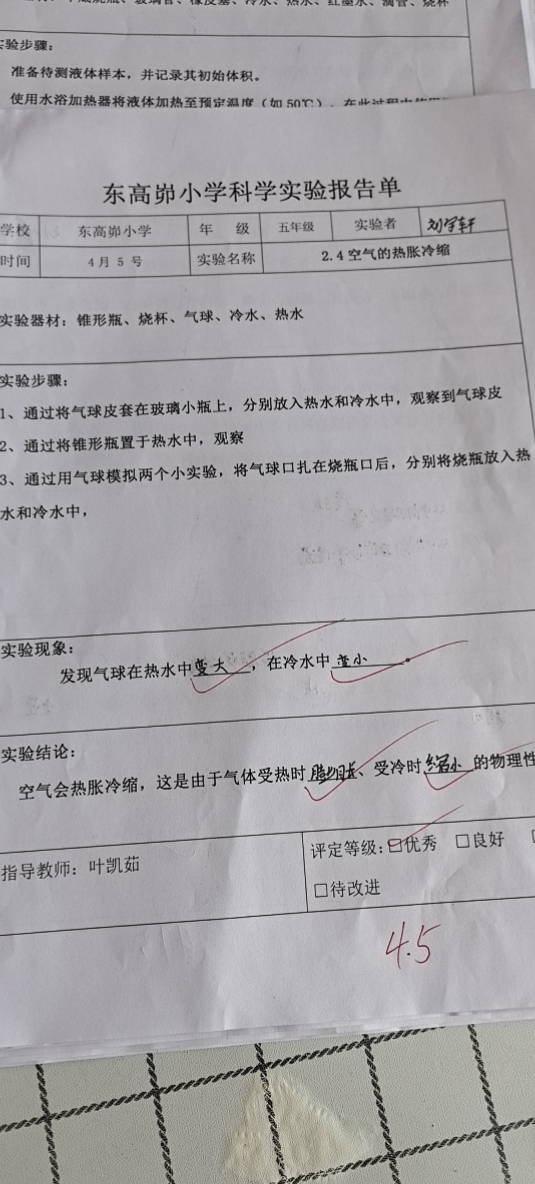 实验步骤:
准备待测液体样本，并记录其初始体积。
使用水浴加热器将液体加热至预定温度（如50℃）。在此过程中使用
东高峁小学科学实验报告单
学校 东高峁小学 年 级 五年级 实验者
时间 4月5号 实验名称 2.4空气的热胀冷缩
实验器材：锥形瓶、烧杯、气球、冷水、热水
实验步骤：
1、通过将气球皮套在玻璃小瓶上，分别放入热水和冷水中，观察到气球皮
2、通过将锥形瓶置于热水中，观察
3、通过用气球模拟两个小实验，将气球口扎在烧瓶口后，分别将烧瓶放入热
水和冷水中，
实验现象：
发现气球在热水中变大，在冷水中变小。
实验结论：
空气会热胀冷缩，这是由于气体受热时膨胀、受冷时缩小的物理性
指导教师：叶凯茹
评定等级：☐优秀 ☐良好
☐待改进
4.5